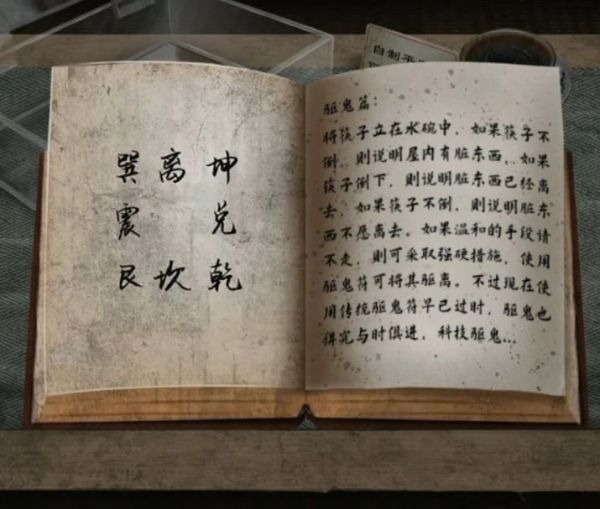 自制
巽 离 坤
震 兑
艮 坎 乾
驱鬼篇:
将筷子立在水碗中,如果筷子不
倒,则说明屋内有脏东西,如果
筷子倒下,则说明脏东西已经离
去,如果筷子不倒,则说明脏东
西不愿离去。如果温和的手段请
不走,则可采取强硬措施,使用
驱鬼符可将其驱离。不过现在使
用传统驱鬼符早已过时,驱鬼也
究与时俱进,科技驱鬼...